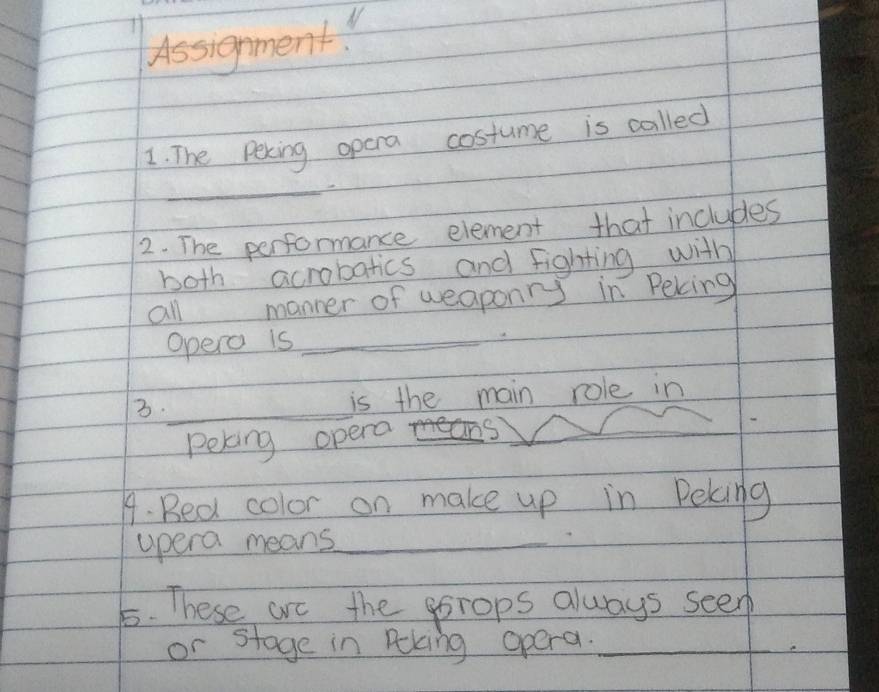 Assignment.
1. The Peking opera costume is called
__________.
2. The performance element that includes
both acrobatics and fighting with
all manner of weaponry in Peking
Opera is __________.
3. __________ is the main role in
peking opera means __________.
4. Red color on make up in Peking
opera means __________.
5. These are the props always seen
or stage in Peking opera. __________.